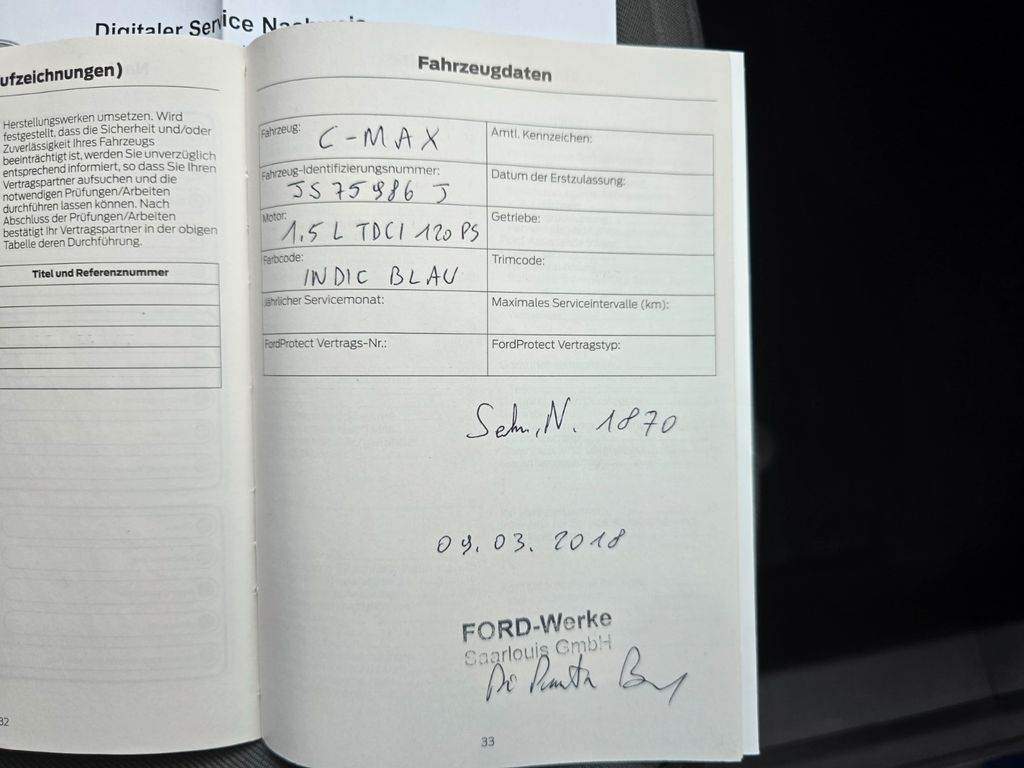 Digitaler Service Nachweis
ufzeichnungen)
Herstellungswerken umsetzen. Wird
festgestellt, dass die Sicherheit und/oder
Zuverlässigkeit Ihres Fahrzeugs
beeinträchtigt ist, werden Sie unverzüglich
entsprechend informiert, so dass Sie Ihren
Vertragspartner aufsuchen und die
notwendigen Prüfungen/Arbeiten
durchführen lassen können. Nach
Abschluss der Prüfungen/Arbeiten
bestätigt Ihr Vertragspartner in der obigen
Tabelle deren Durchführung.
Titel und Referenznummer
32
Fahrzeugdaten
Fahrzeug: C-MAX
Amtl. Kennzeichen:
Fahrzeug-Identifizierungsnummer:
JS75986 J
Datum der Erstzulassung:
Motor:
1.5 L TDCI 120 PS
Getriebe:
Farbcode:
INDIC BLAU
Trimcode:
Jährlicher Servicemonat:
Maximales Serviceintervalle (km):
FordProtect Vertrags-Nr.:
FordProtect Vertragstyp:
N. 1870
09.03.2018
FORD-Werke
Saarlouis GmbH
33